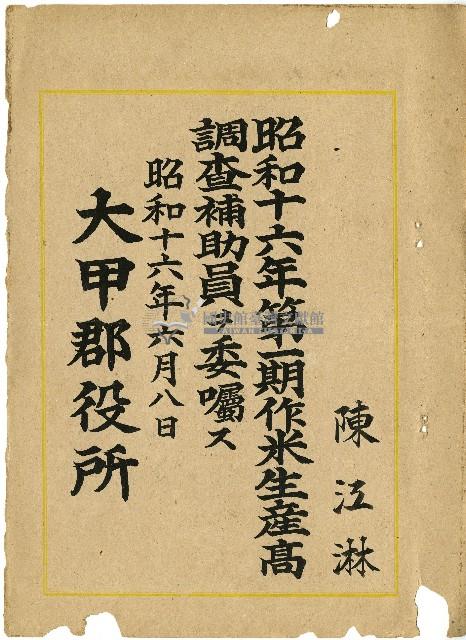 陳江淋
昭和十六年第一期作米生産高
調查補助員ヲ委囑ス
昭和十六年六月八日
大甲郡役所
國史館臺灣文獻館
TAIWAN HISTORICA